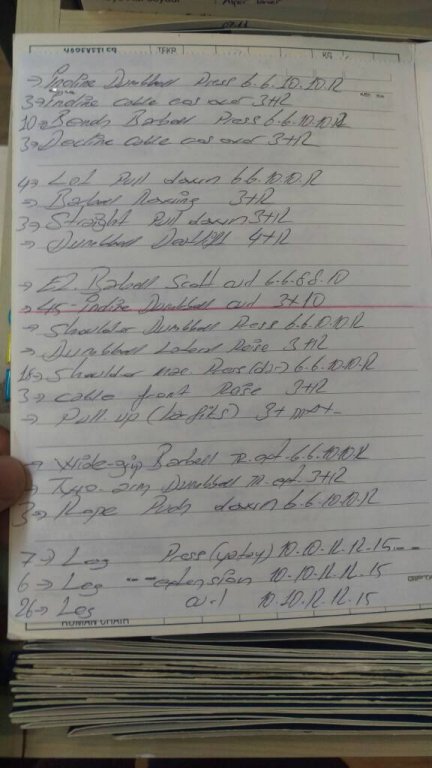 HAREKETLER TEKR KG
→ İncline Dumbbell Press 6.6.10.10.12
3→ İncline cable cos over 3+12
10→ Bench Barbell Press 6.6.10.10.12
3→ Decline cable cos over 3+12
4→ Lat Pull down 6.6.10.10.12
→ Barbell Rowing 3+12
3→ Straight Pull down 3+12
→ Dumbbell Deadlift 4+12
→ EZ. Barbell Scott curl 6.6.8.8.10
→ 45- İncline Dumbbell curl 3+10
→ Shoulder Dumbbell Press 6.6.10.10.12
→ Dumbbell Lateral Raise 3+12
18→ Shoulder mac Press 6.6.10.10.12
3→ cable front Raise 3+12
→ Pull up (barfiks) 3+
→ Wide-grip Barbell 6.6.10.10.12
→ arm Dumbbell 3+12
3→ Rope Push down 6.6.10.10.12
7→ Leg Press (yatay) 10.10.12.12.15
6→ Leg extension 10.10.12.12.15
26→ Leg curl 10.10.12.12.15
ROMAN CHAIR